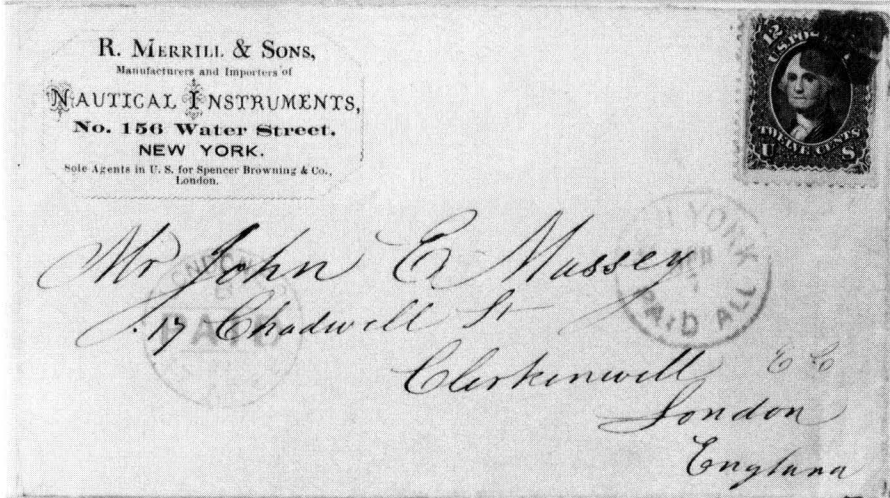 R. MERRILL & SONS,
Manufacturers and Importers of
NAUTICAL INSTRUMENTS,
No. 156 Water Street.
NEW YORK.
Sole Agents in U. S. for Spencer Browning & Co.,
London.
12
U.S. POST
TWELVE CENTS
U S
YORK
PAID ALL
PAID
Mr John E Massey
17 Chadwell St
Clerkenwell E C
London
England